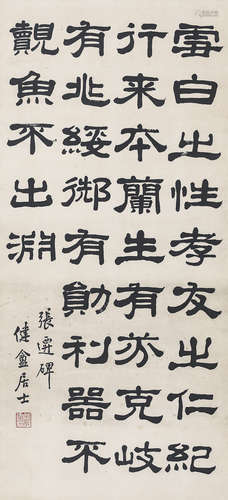 雪白之性孝友之仁紀
行来本蘭生有芬克岐
有兆綏御有勛利器不
覿魚不出淵
張遷碑
健盦居士